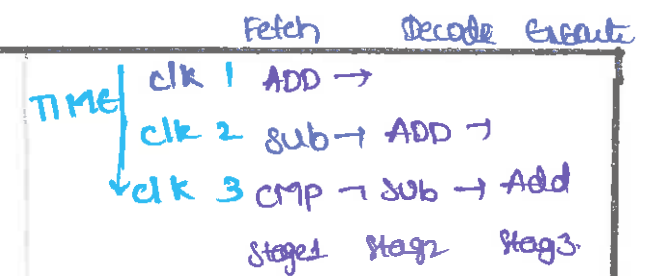 Fetch Decode Execute
TIME
clk 1 ADD →
clk 2 SUb → ADD →
clk 3 CMP → SUb → Add
Stage1 Stag2 Stag3.